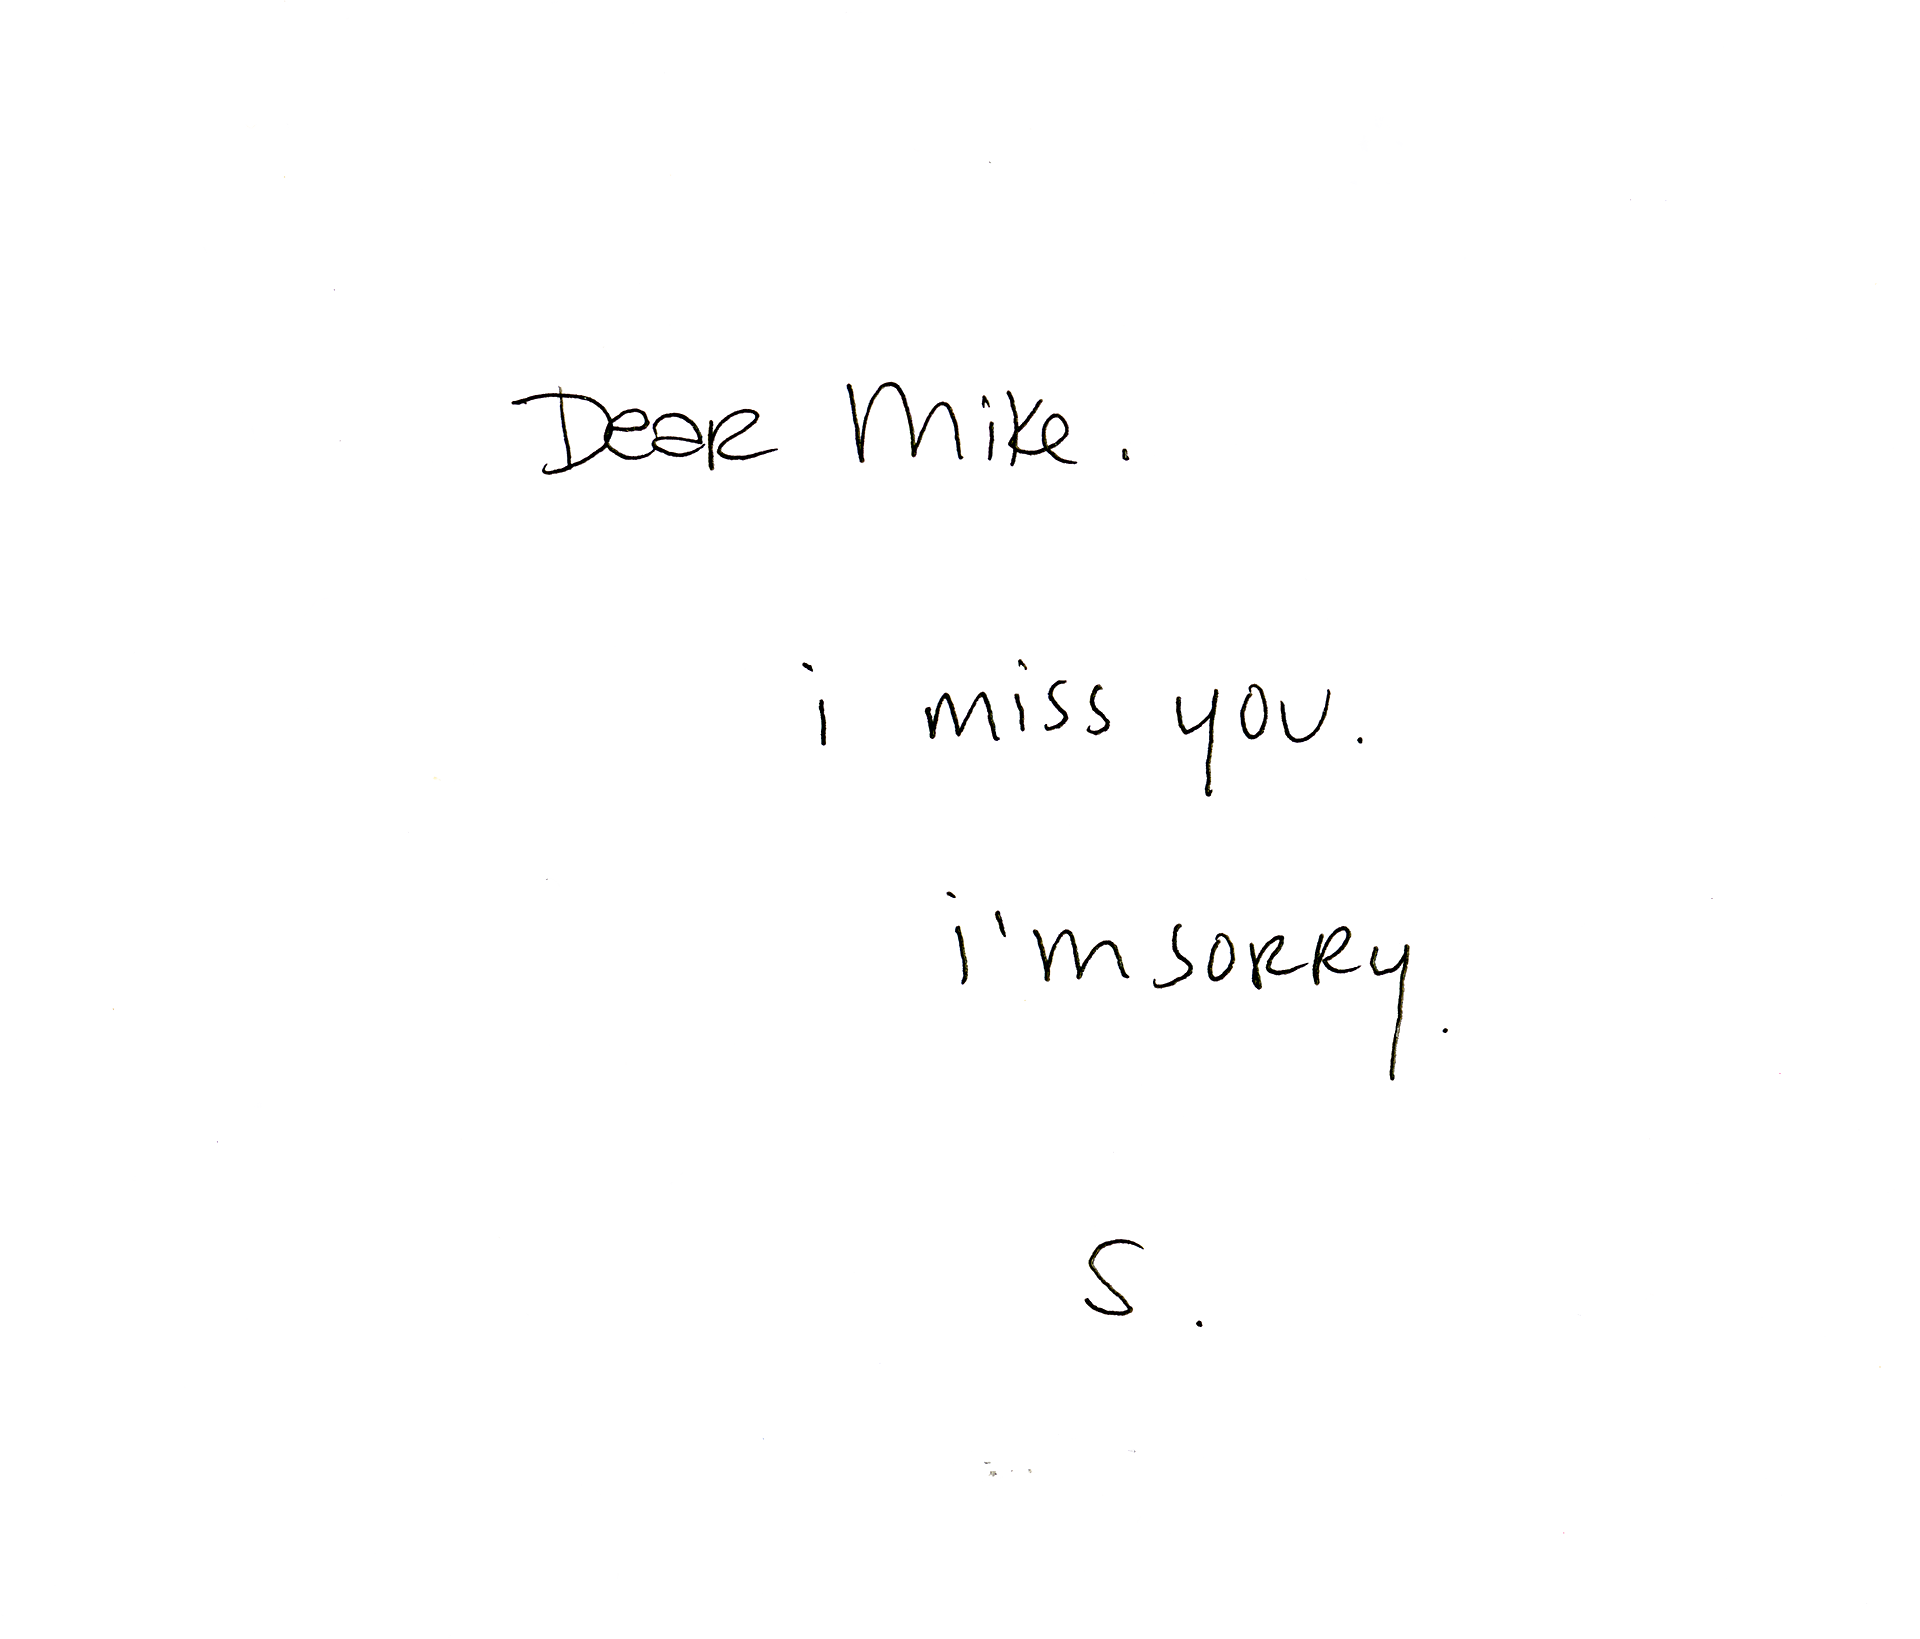 Dear Mike.
i miss you.
i'm sorry.
S.